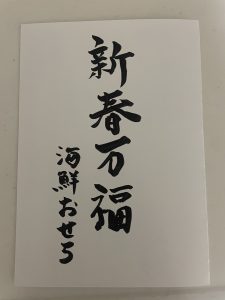 新春万福
海鮮おせち